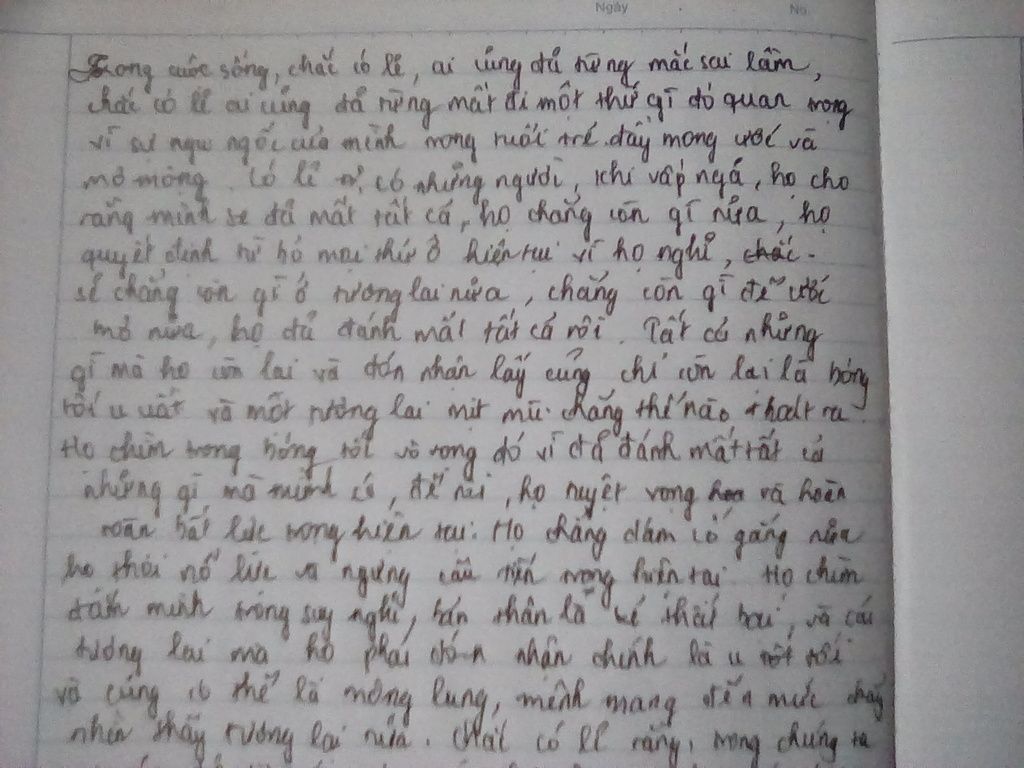 Ngày No
Trong cuộc sống, chắc có lẽ, ai cũng đã từng mắc sai lầm,
chắc có lẽ ai cũng đã từng mất đi một thứ gì đó quan trọng
vì sự ngu ngốc của mình trong tuổi trẻ đầy mong ước và
mơ mộng. Có lẽ có những người, khi vấp ngã, họ cho
rằng mình sẽ đã mất tất cả, họ chẳng còn gì nữa, họ
quyết định từ bỏ mọi thứ ở hiện tại vì họ nghĩ, chắc
sẽ chẳng còn gì ở tương lai nữa, chẳng còn gì để ước
mơ nữa, họ đã đánh mất tất cả rồi. Tất cả những
gì mà họ còn lại và đón nhận lấy cũng chỉ còn lại là bóng
tối u uất và một tương lai mịt mù chẳng thế nào thoát ra.
Họ chìm trong bóng tối vô vọng đó vì đã đánh mất tất cả
những gì mà mình có, để rồi, họ tuyệt vọng và hoàn
toàn bất lực trong hiện tại. Họ chẳng dám cố gắng nữa
họ thôi nổ lực và ngưng cầu tiến trong hiện tại. Họ chìm
đắm mình trong suy nghĩ, bản thân là kẻ thất bại, và cái
tương lai mà họ phải đón nhận chính là u tối
và cũng có thể là mông lung, mênh mang đến mức chẳng
nhìn thấy tương lai nữa. Chắc có lẽ rằng, trong chúng ta